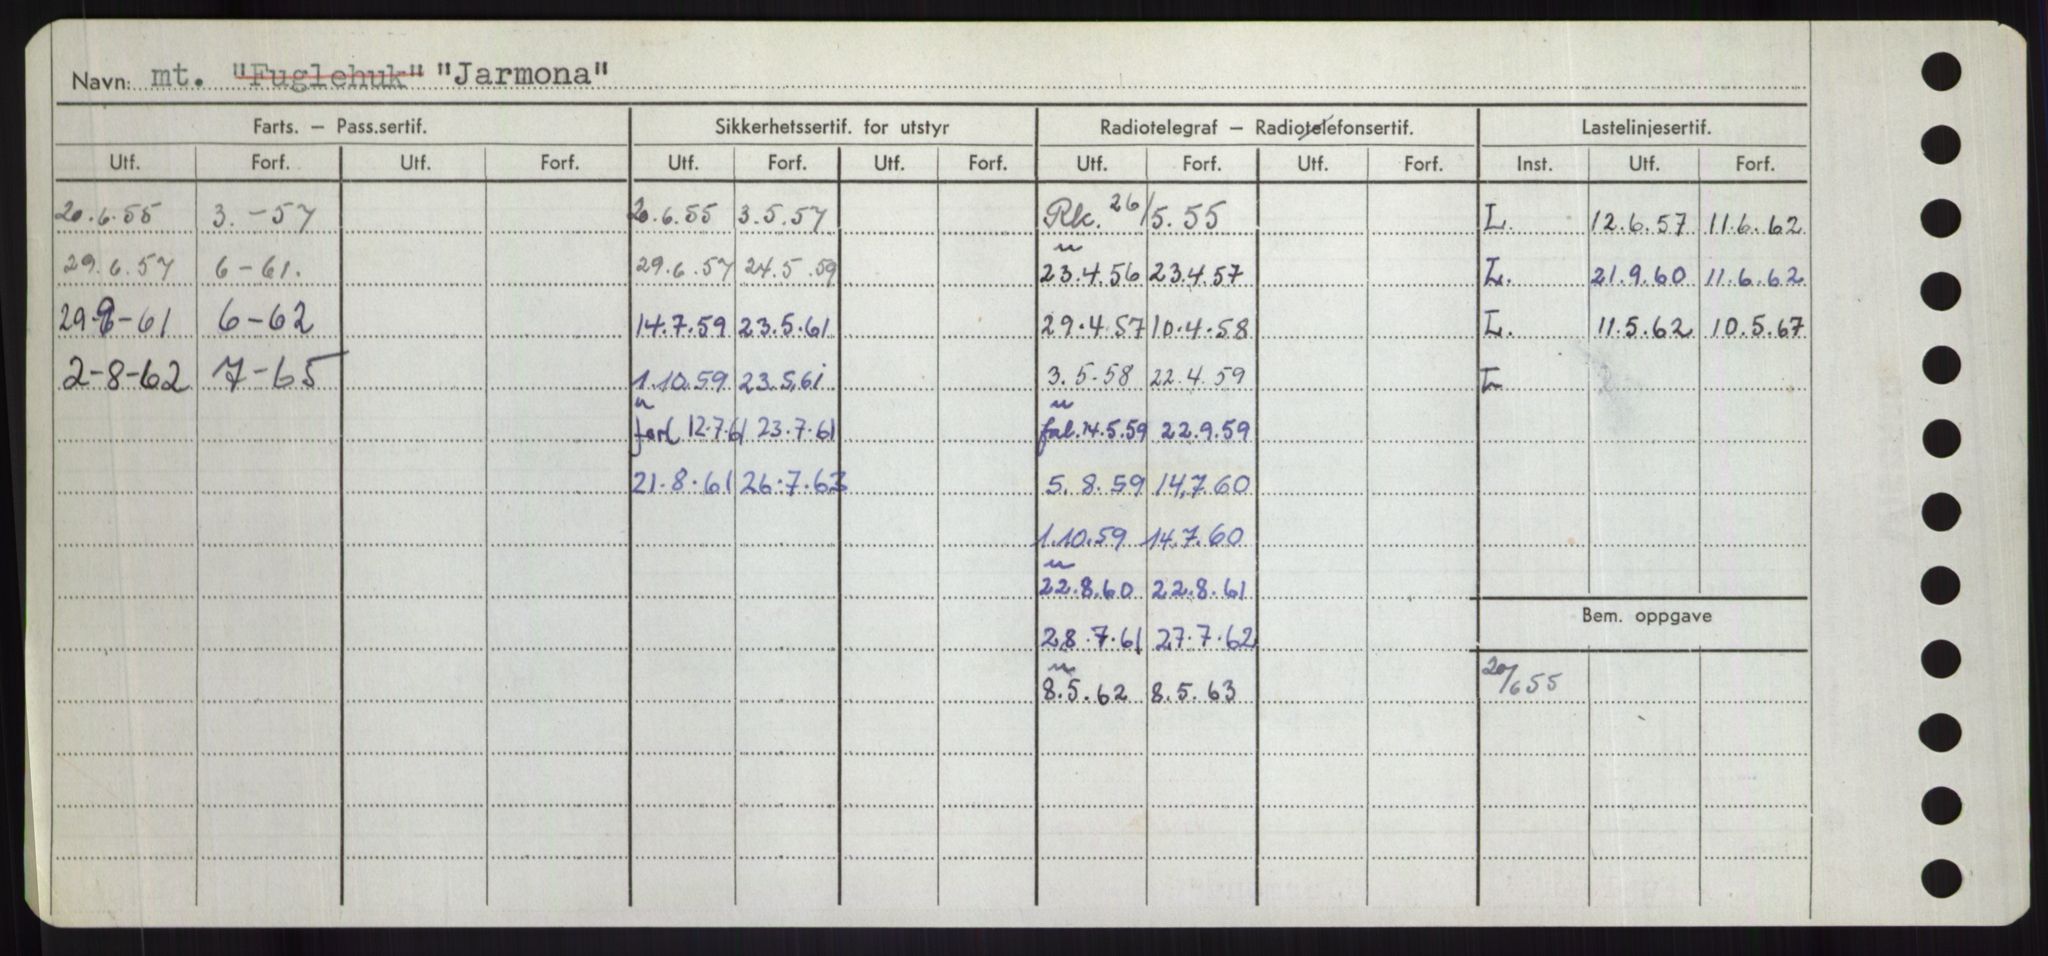 Navn: mt. "Fuglehuk" "Jarmona"
Farts. – Pass.sertif. Sikkerhetssertif. for utstyr Radiotelegraf – Radiotelefonsertif. Lastelinjesertif.
Utf. Forf. Utf. Forf. Utf. Forf. Utf. Forf. Utf. Forf. Utf. Forf. Inst. Utf. Forf.
20.6.55 3.-57 20.6.55 3.5.57 Rk. 26/5.55 L. 12.6.57 11.6.62
29.6.57 6-61. 29.6.57 24.5.59 23.4.56 23.4.57 L. 21.9.60 11.6.62
29-9-61 6-62 14.7.59 23.5.61 29.4.57 10.4.58 L. 11.5.62 10.5.67
2-8-62 7-65 1.10.59 23.5.61 3.5.58 22.4.59 L
forl 12.7.61 23.7.61 14.5.59 22.9.59
21.8.61 26.7.63 5.8.59 14.7.60
1.10.59 14.7.60
22.8.60 22.8.61
Bem. oppgave
28.7.61 27.7.62
8.5.62 8.5.63 20/655